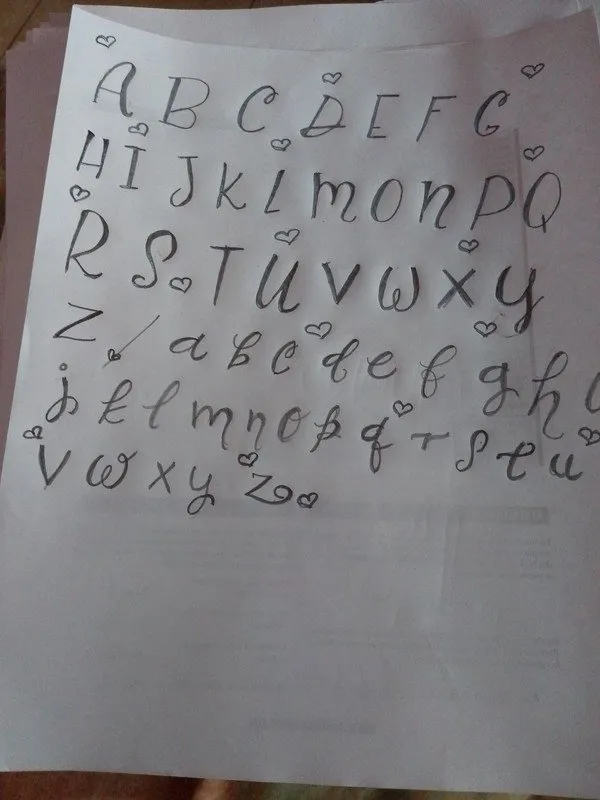 A B C D E F G
H I J K L M O N P Q
R S T U V W X Y
Z / a b c d e f g h i
j k l m n o p q r s t u
v w x y z